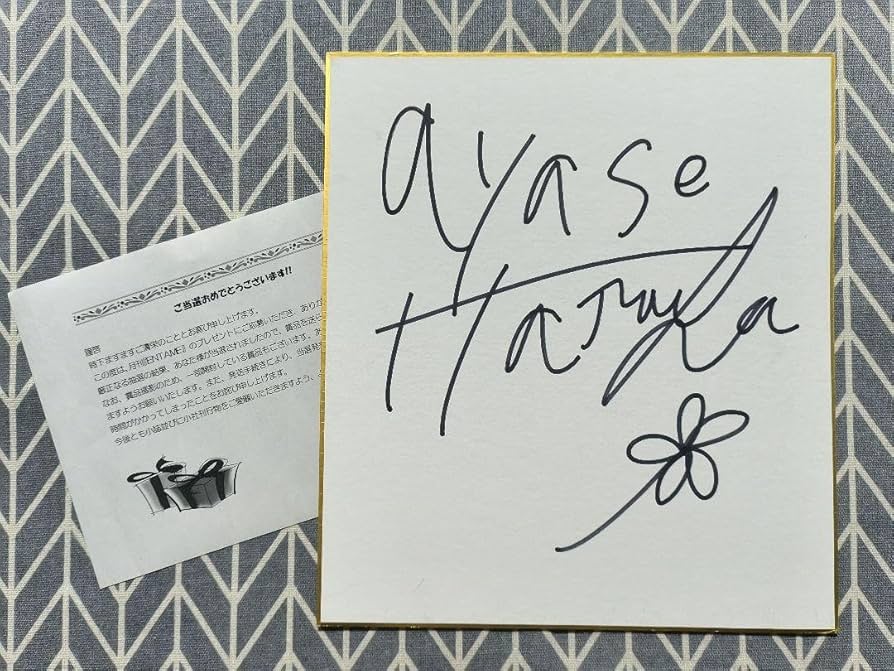 ご当選おめでとうございます!!
謹啓
時下ますますご清栄のこととお慶び申し上げます。
この度は、月刊『ENTAME』のプレゼントにご応募いただき、ありが
厳正なる抽選の結果、あなた様が当選されましたので、賞品を送ら
なお、賞品撮影のため、一部開封している賞品もございます。あ
ますようお願いいたします。また、発送手続きにより、当選発
時間がかかってしまったことをお詫び申し上げます。
今後とも小誌並びに小社刊行物をご愛顧いただきますよう、
ayase
Haruka